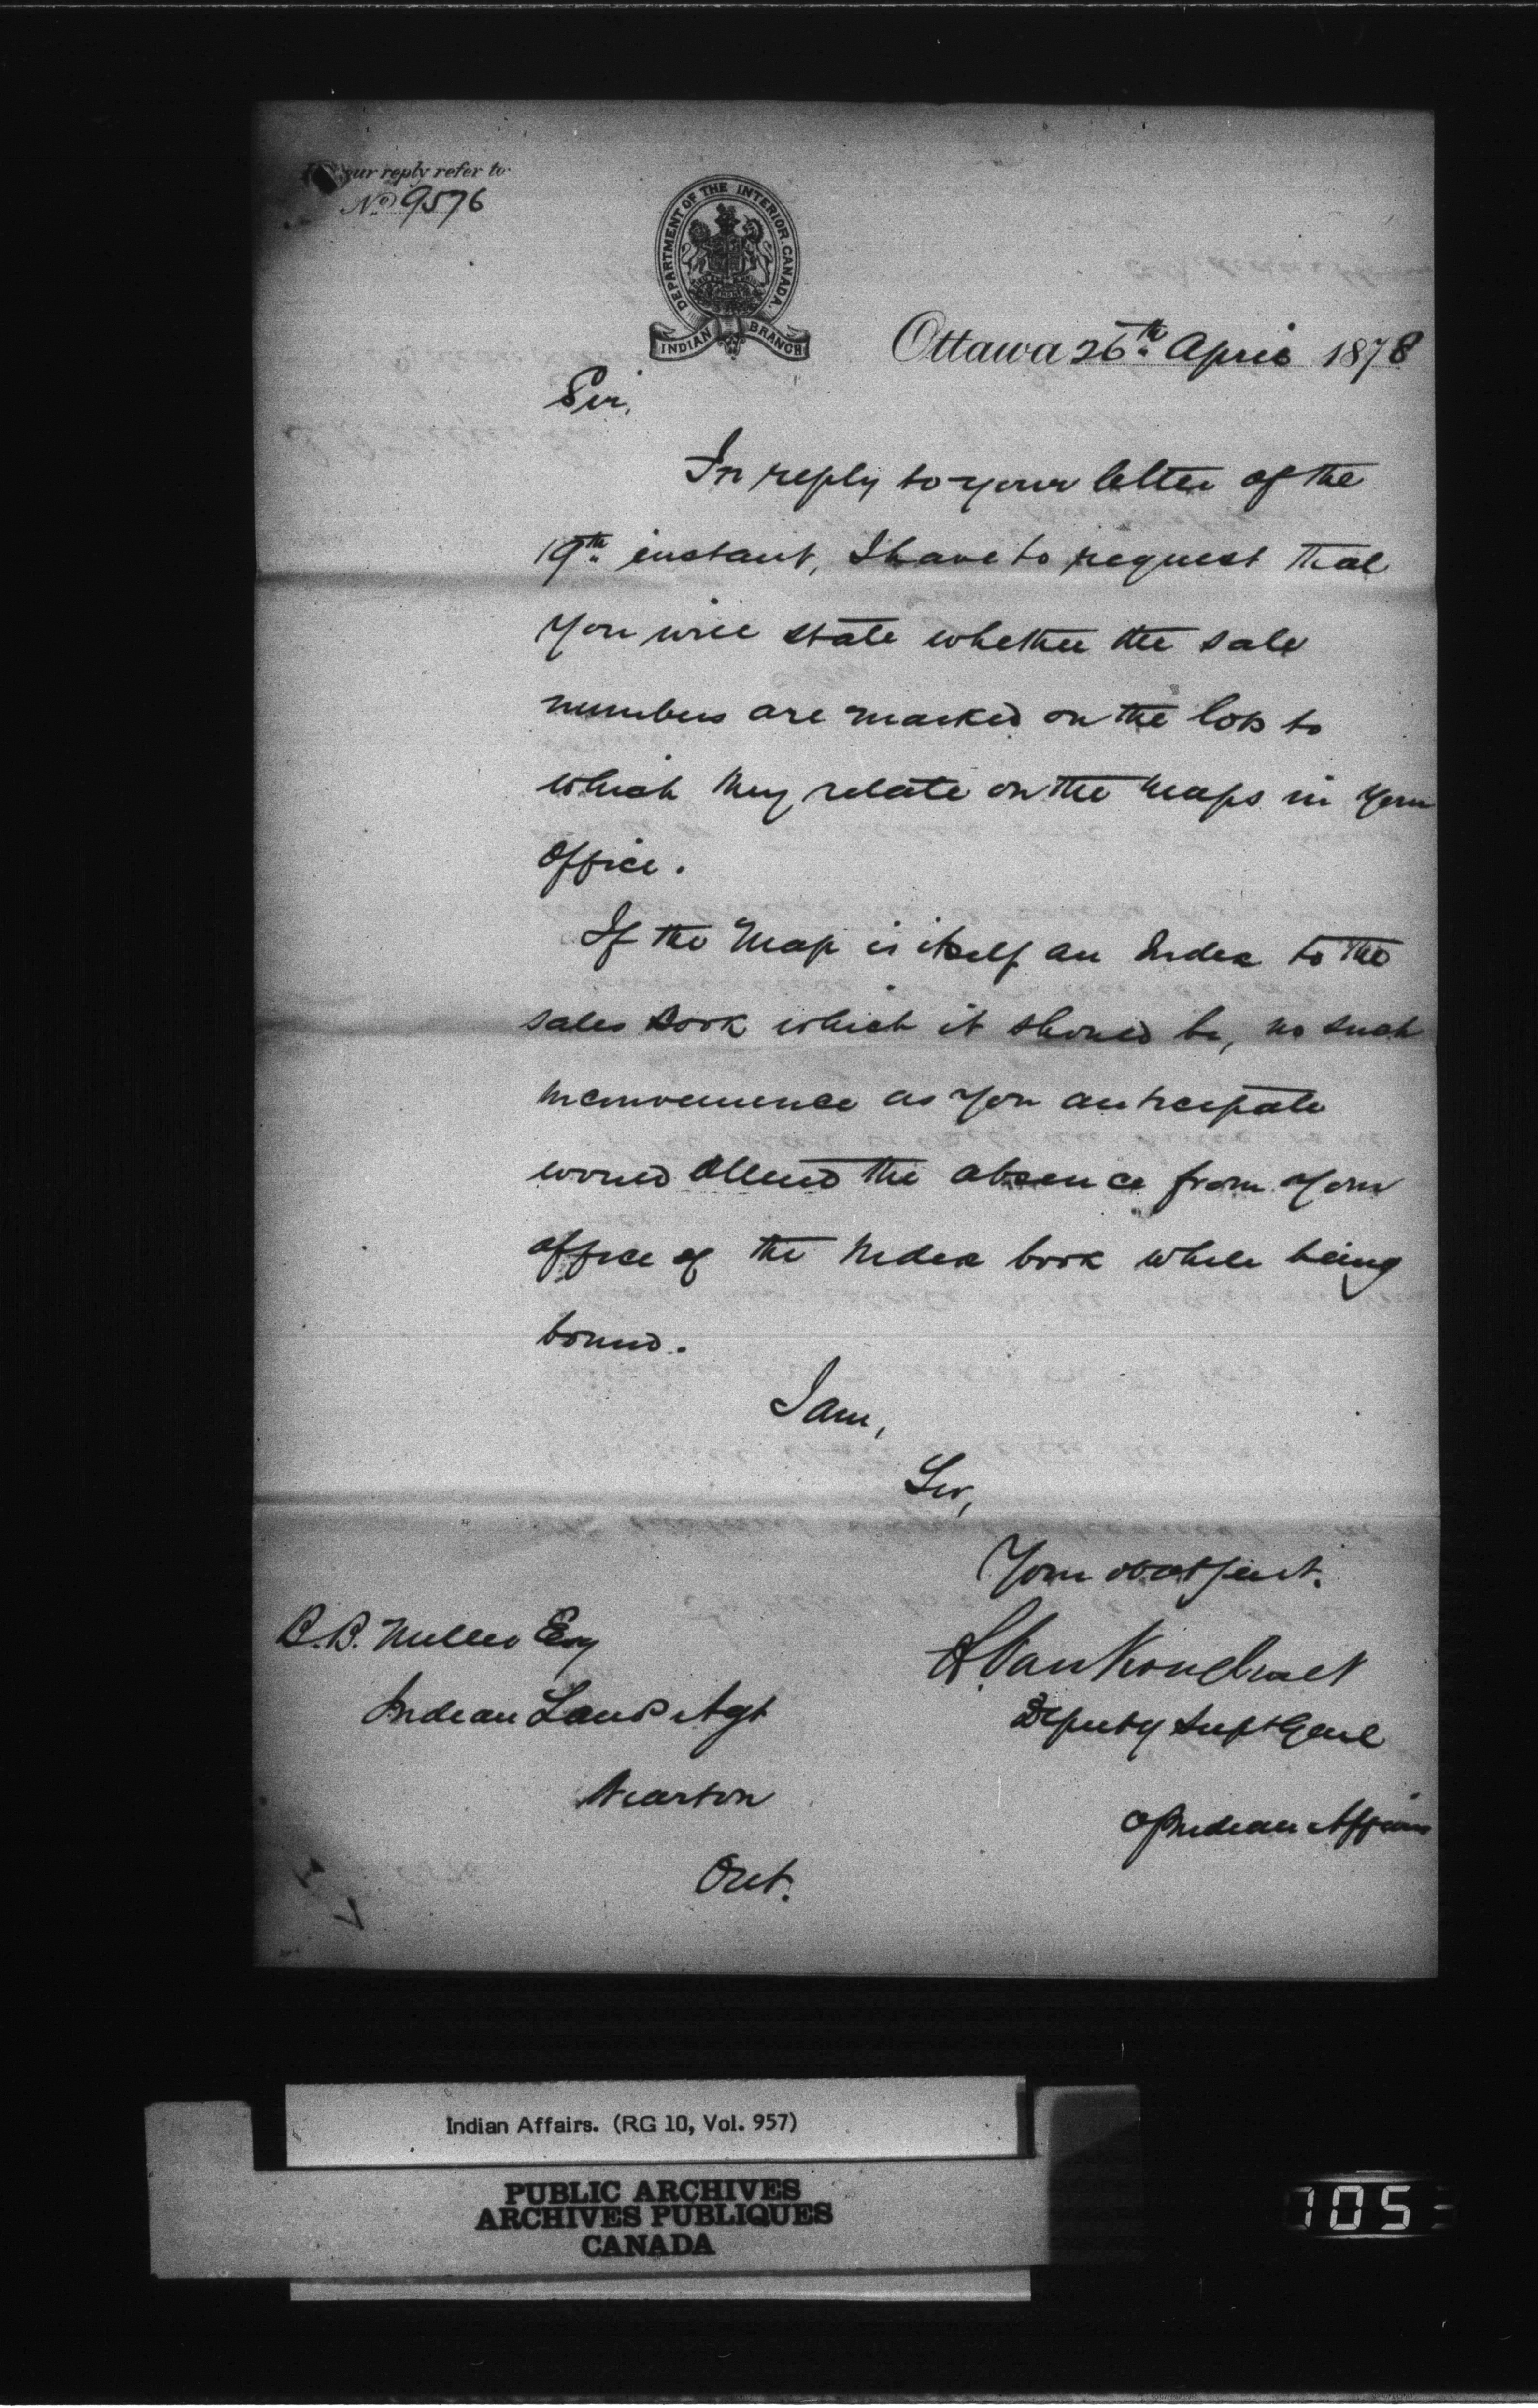 In your reply refer to
No. 9576
DEPARTMENT OF THE INTERIOR. CANADA.
INDIAN BRANCH
Ottawa 26th April 1878
Sir,
In reply to your letter of the
19th instant, I have to request that
you will state whether the sale
numbers are marked on the lots to
which they relate on the Maps in your
office.
If the Map is itself an Index to the
sales Book which it should be, no such
inconvenience as you anticipate
would attend the absence from your
office of the Index book while being
bound.
I am,
Sir,
Your obdt servt.
L. VanKoughnet
Deputy Supt Genl
of Indian Affairs
B.B. Miller Esq
Indian Land Agt
Wiarton
Ont.
Indian Affairs. (RG 10, Vol. 957)
PUBLIC ARCHIVES
ARCHIVES PUBLIQUES
CANADA
1053